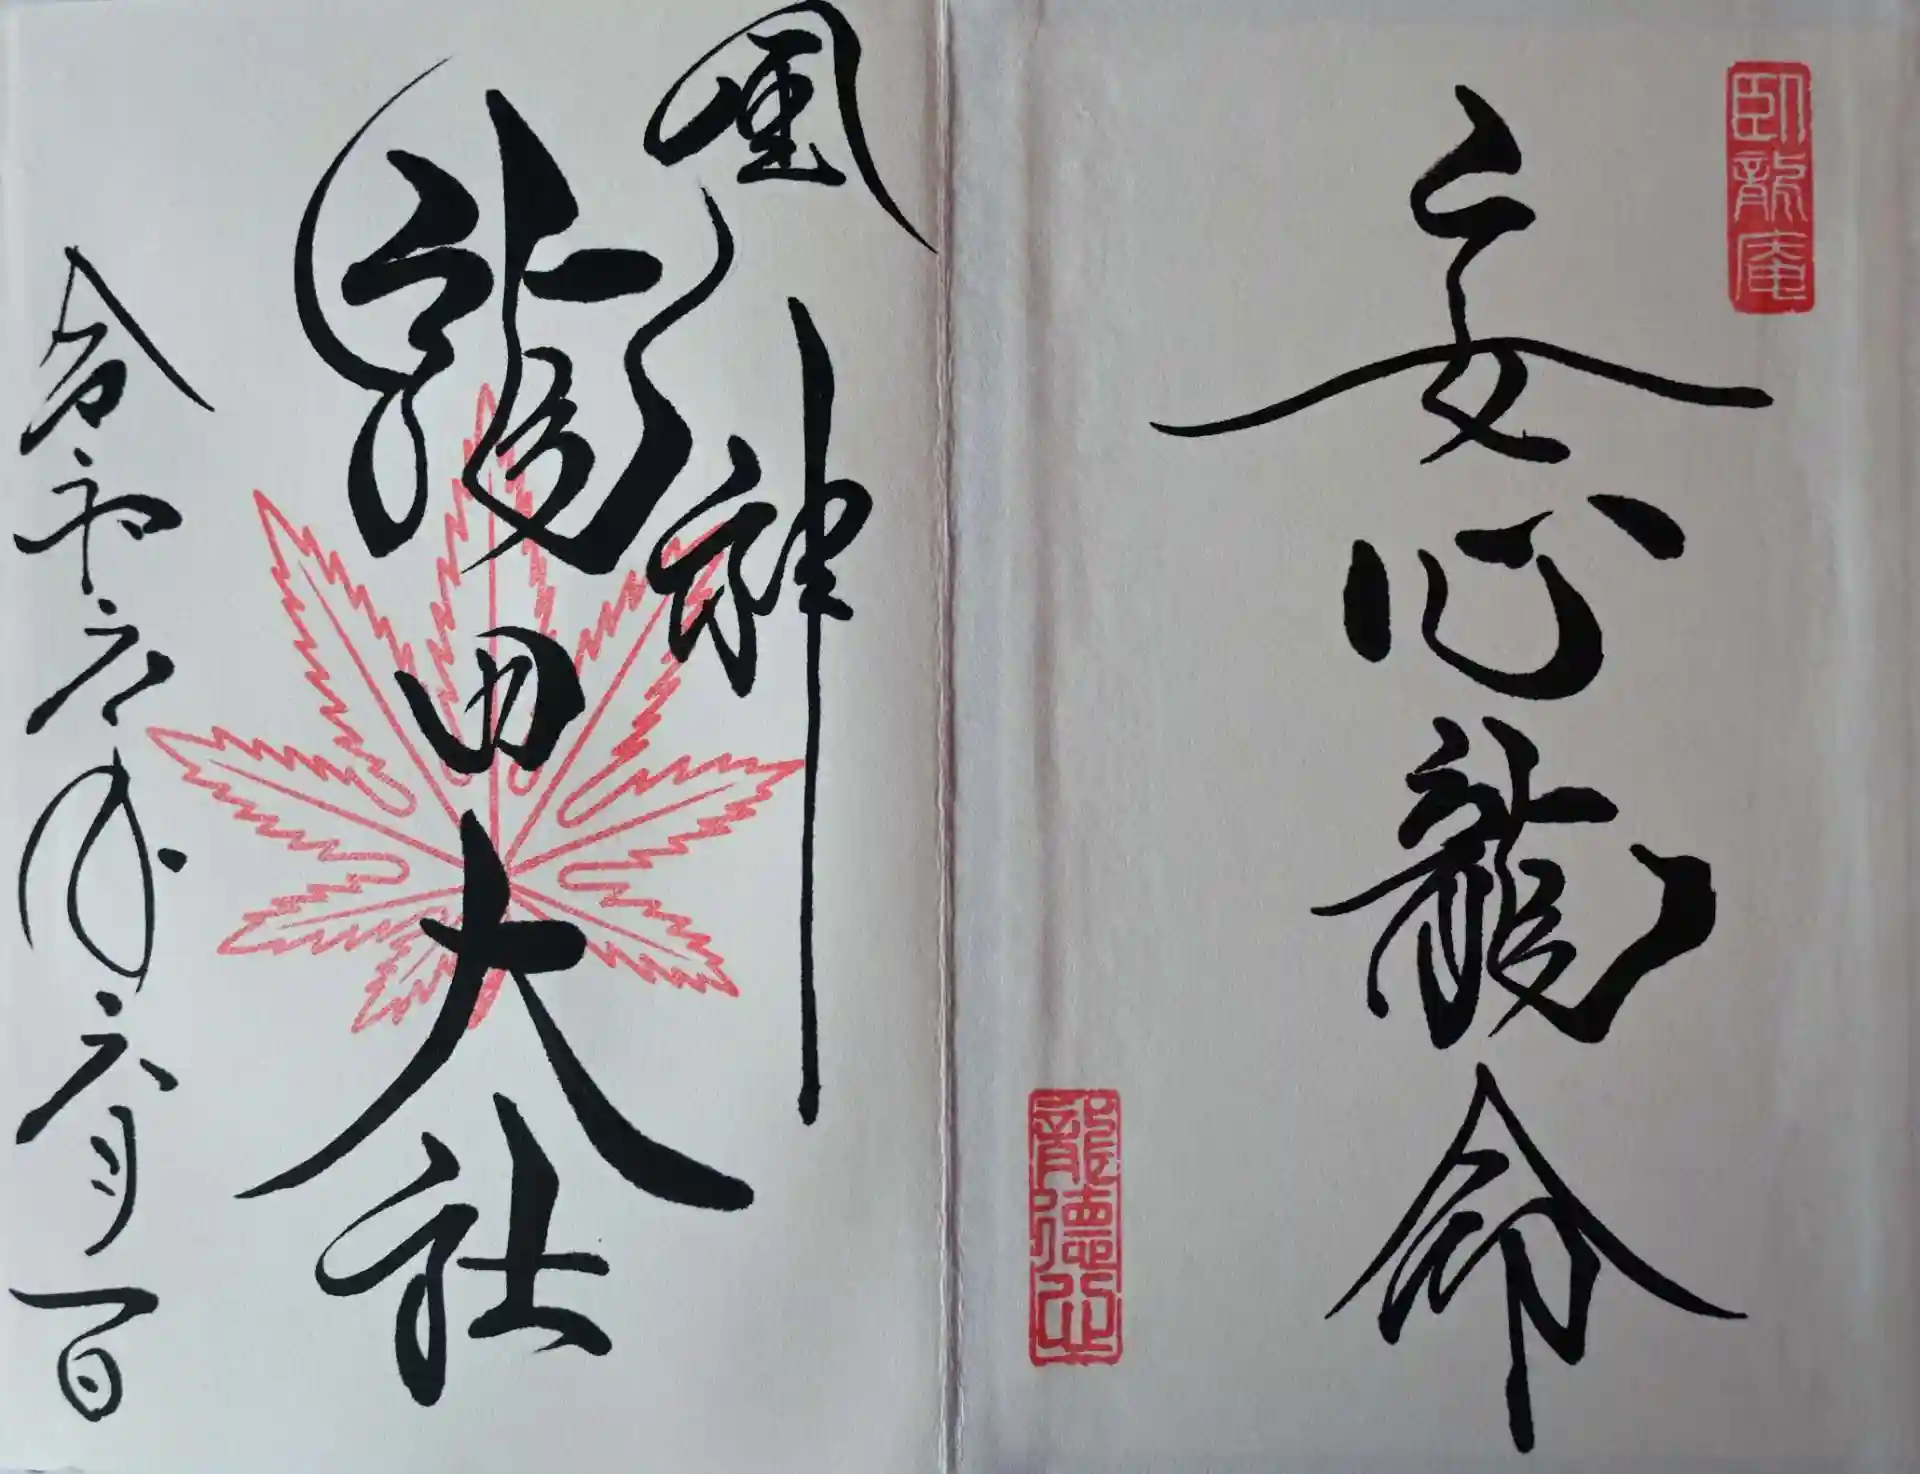 臥龍庵
安心龍命
龍徳
風神
龍田大社
令和六年六月一日